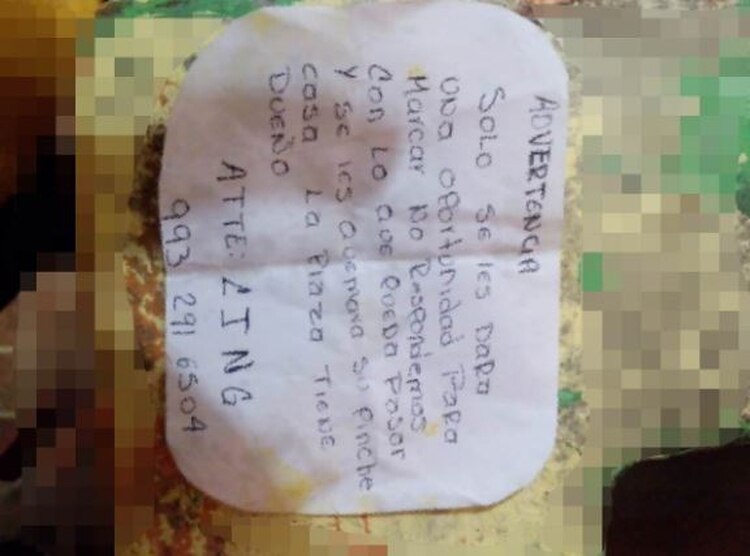 ADVERTENCIA
SOLO SE LES DARA
UNA OPORTUNIDAD PARA
MARCAR NO RESPONDEMOS
CON LO QUE PUEDA PASAR
Y SE LES QUEMARA SU PINCHE
CASA LA PLAZA TIENE
DUEÑO
ATTE: CJNG
993 291 6504